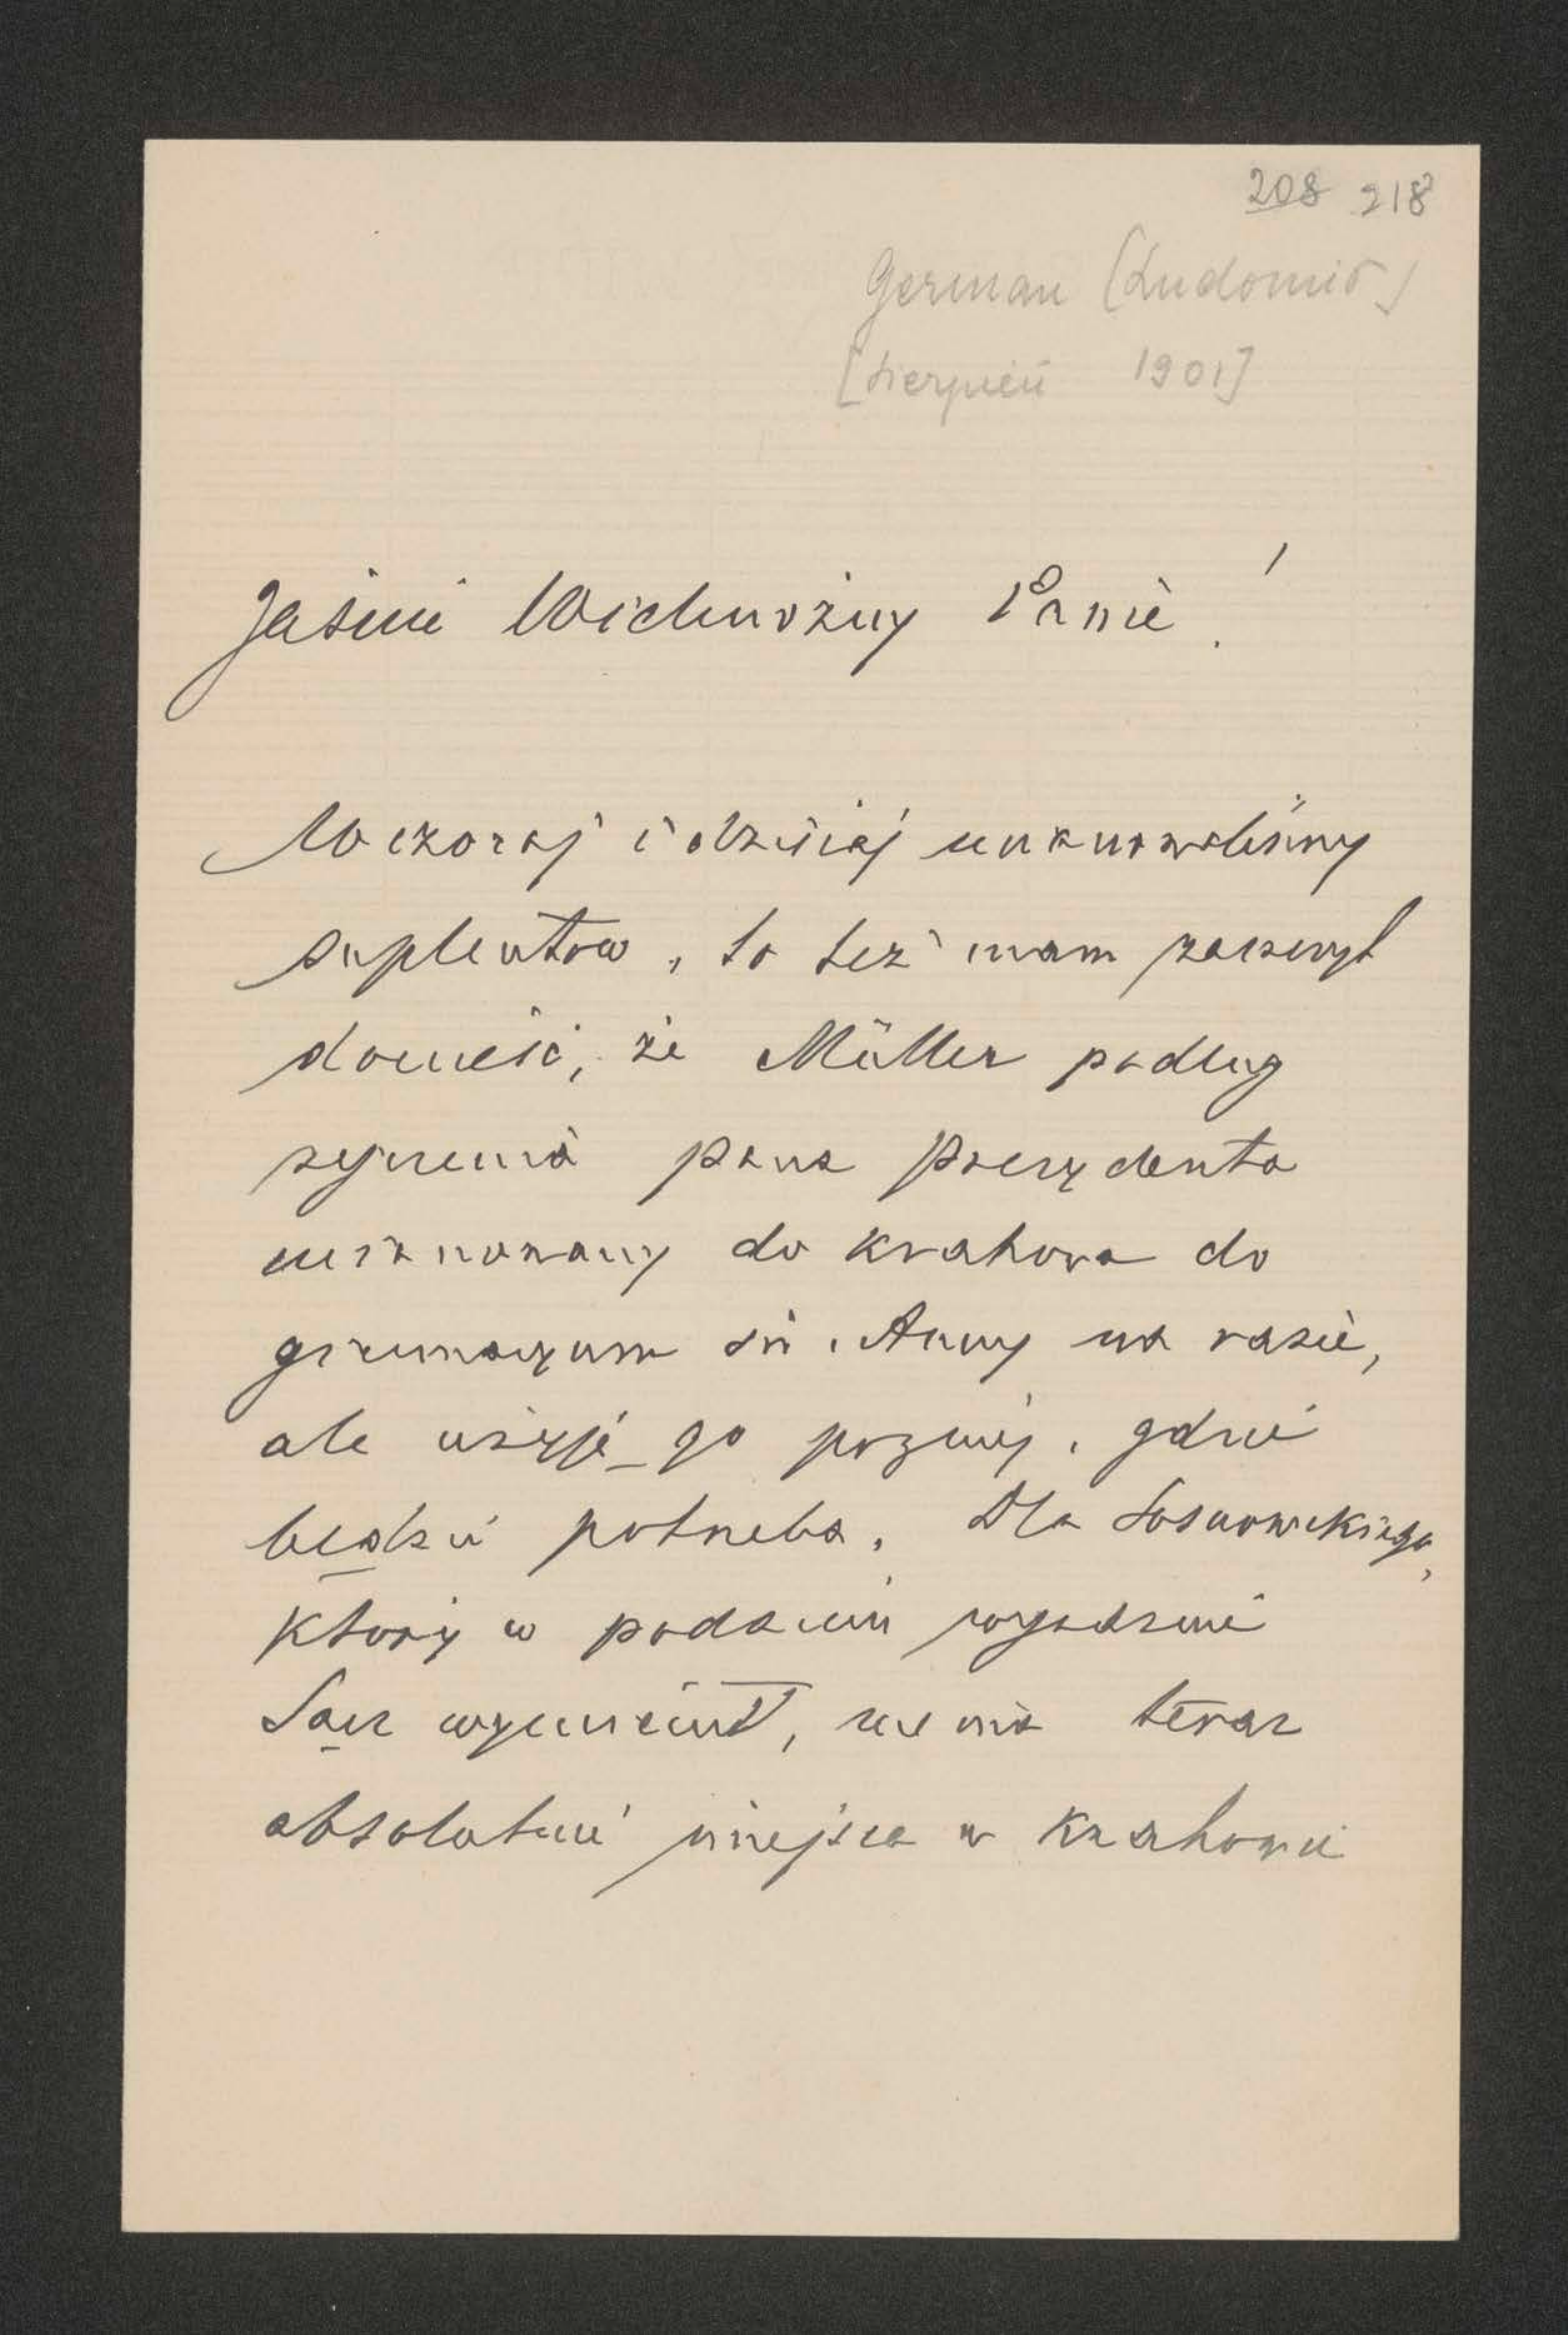 208 218
German (Ludomił)
[sierpień 1901]
Jaśnie Wielmożny Panie!
Wczoraj i dzisiaj mianowaliśmy
suplentów, to też mam zaszczyt
donieść, że Müller podług
życzenia pana Prezydenta
mianowany do Krakowa do
gimnazyum św. Anny na razie,
ale użyję go później, gdzie
będzie potrzeba. Dla Sosnowskiego,
który w podaniu wyraźnie
Sącz wymienił, nie ma teraz
absolutnie miejsca w Krakowie